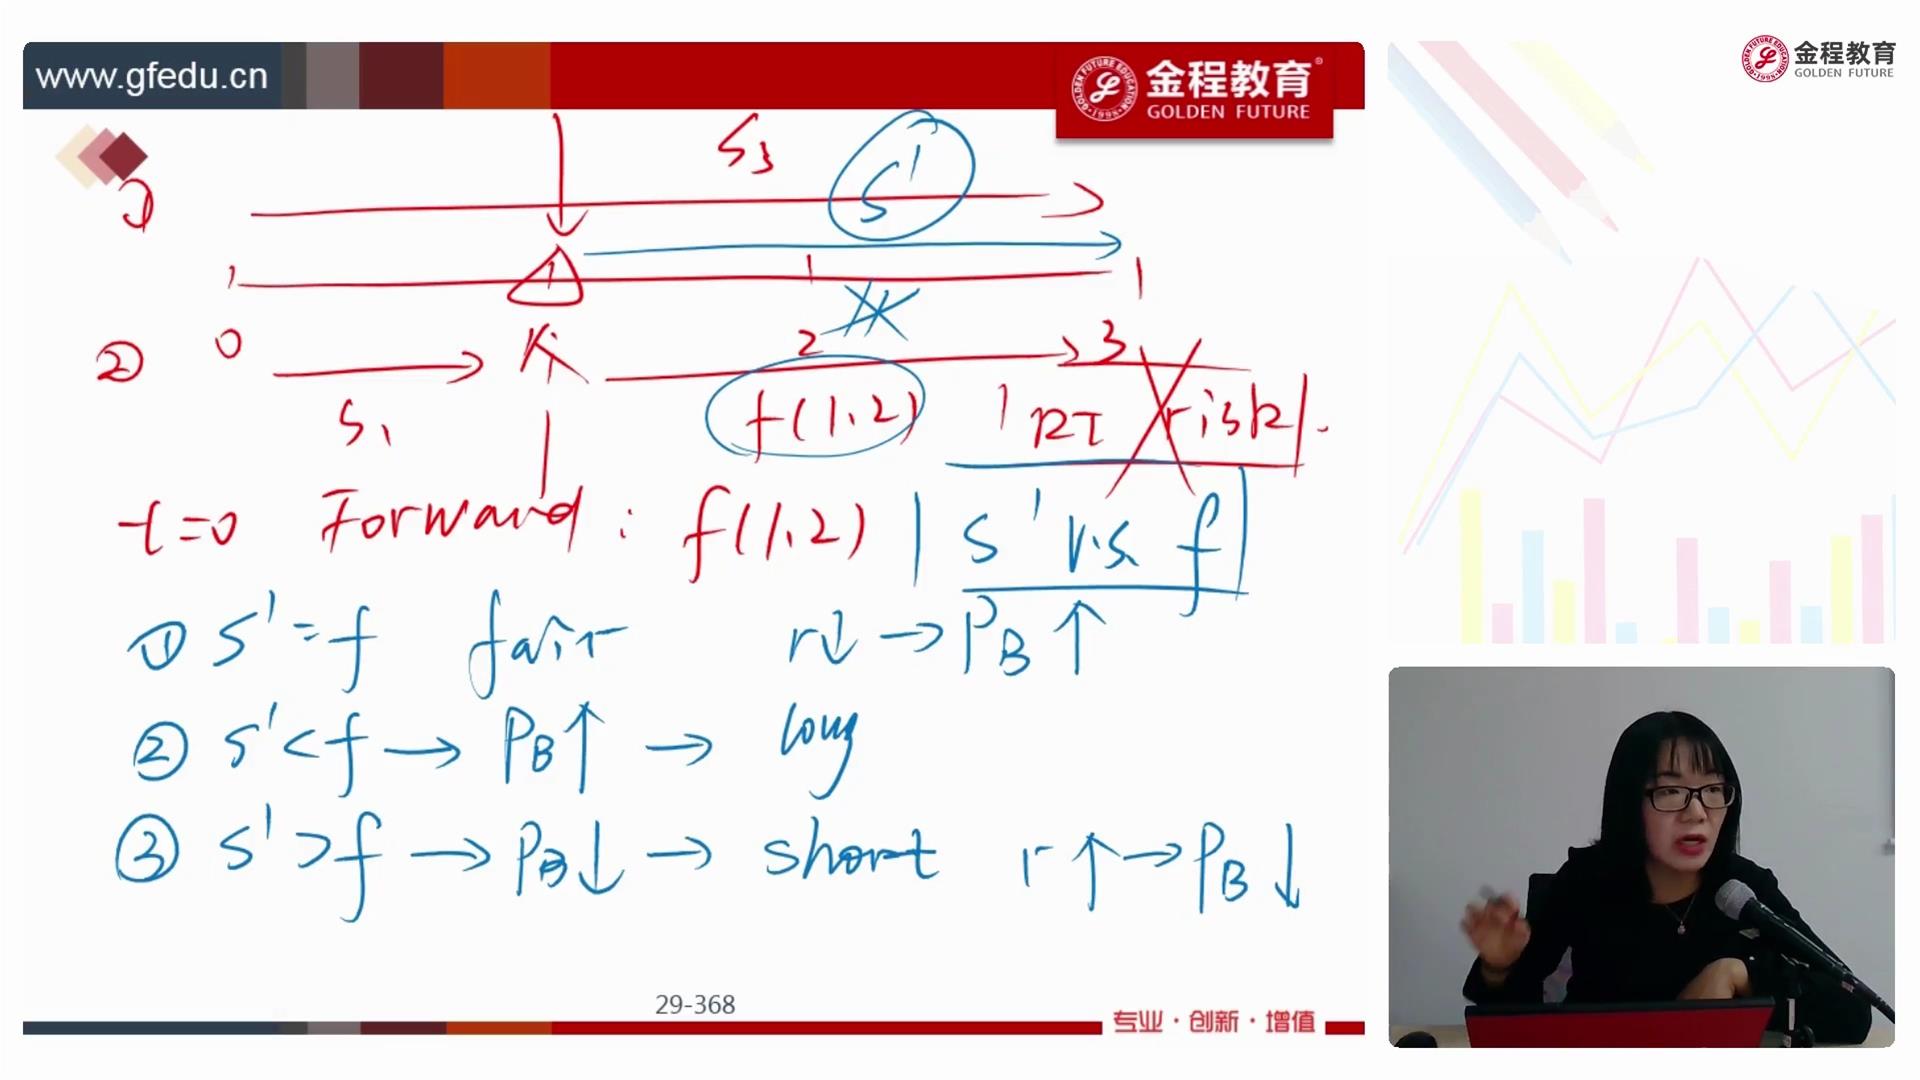 www.gfedu.cn
金程教育
GOLDEN FUTURE
金程教育
GOLDEN FUTURE
S3
S'
①
1
0
2
3
②
S1
f(1,2)
RI risk
t=0 Forward: f(1,2) | S' v.s. f
① S' = f fair r↓ → PB ↑
② S' < f → PB ↑ → long
③ S' > f → PB ↓ → short r ↑ → PB ↓
29-368
专业·创新·增值